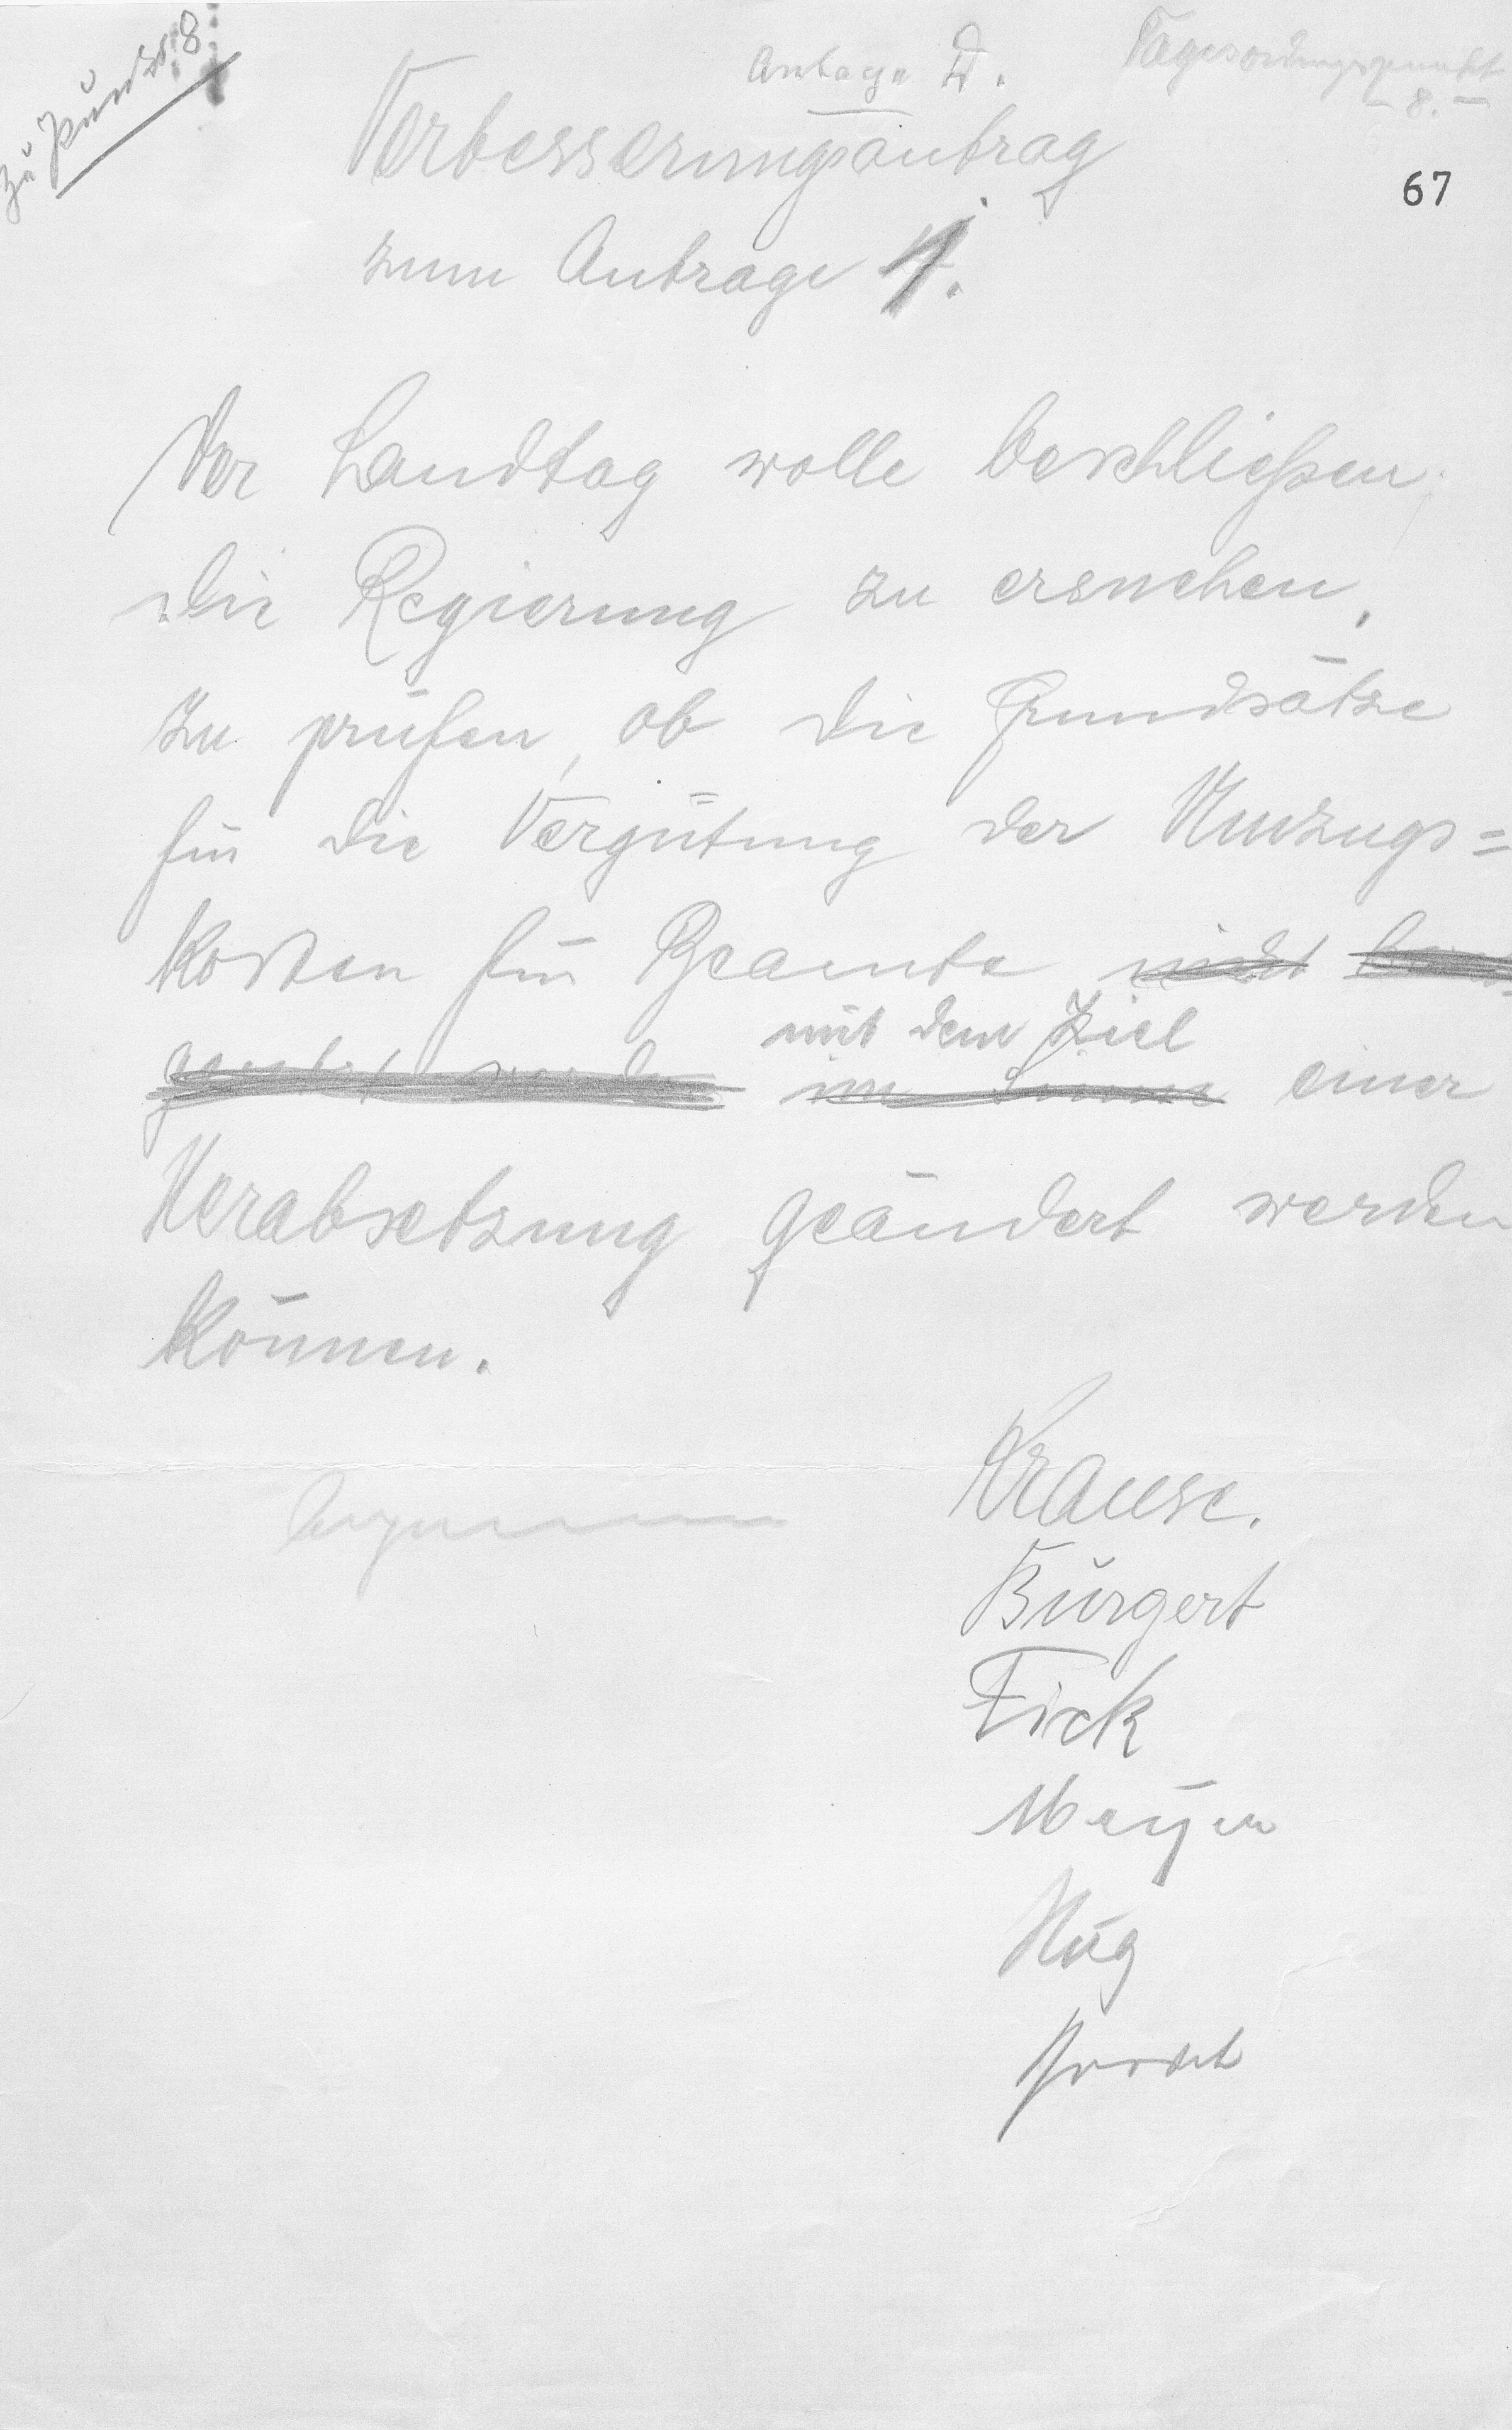 zu Punkt 8
Antrag D.
Tagesordnungspunkt
- 8. -
67
Verbesserungsantrag
zum Antrage 4.
Der Landtag wolle beschließen:
die Regierung zu ersuchen,
zu prüfen, ob die Grundsätze
für die Vergütung der Umzugs=
kosten für Beamte nicht
mit dem Ziel
im Sinne einer
Herabsetzung geändert werden
können.
Krause.
Bürgert
Fick
Meyer
Hug